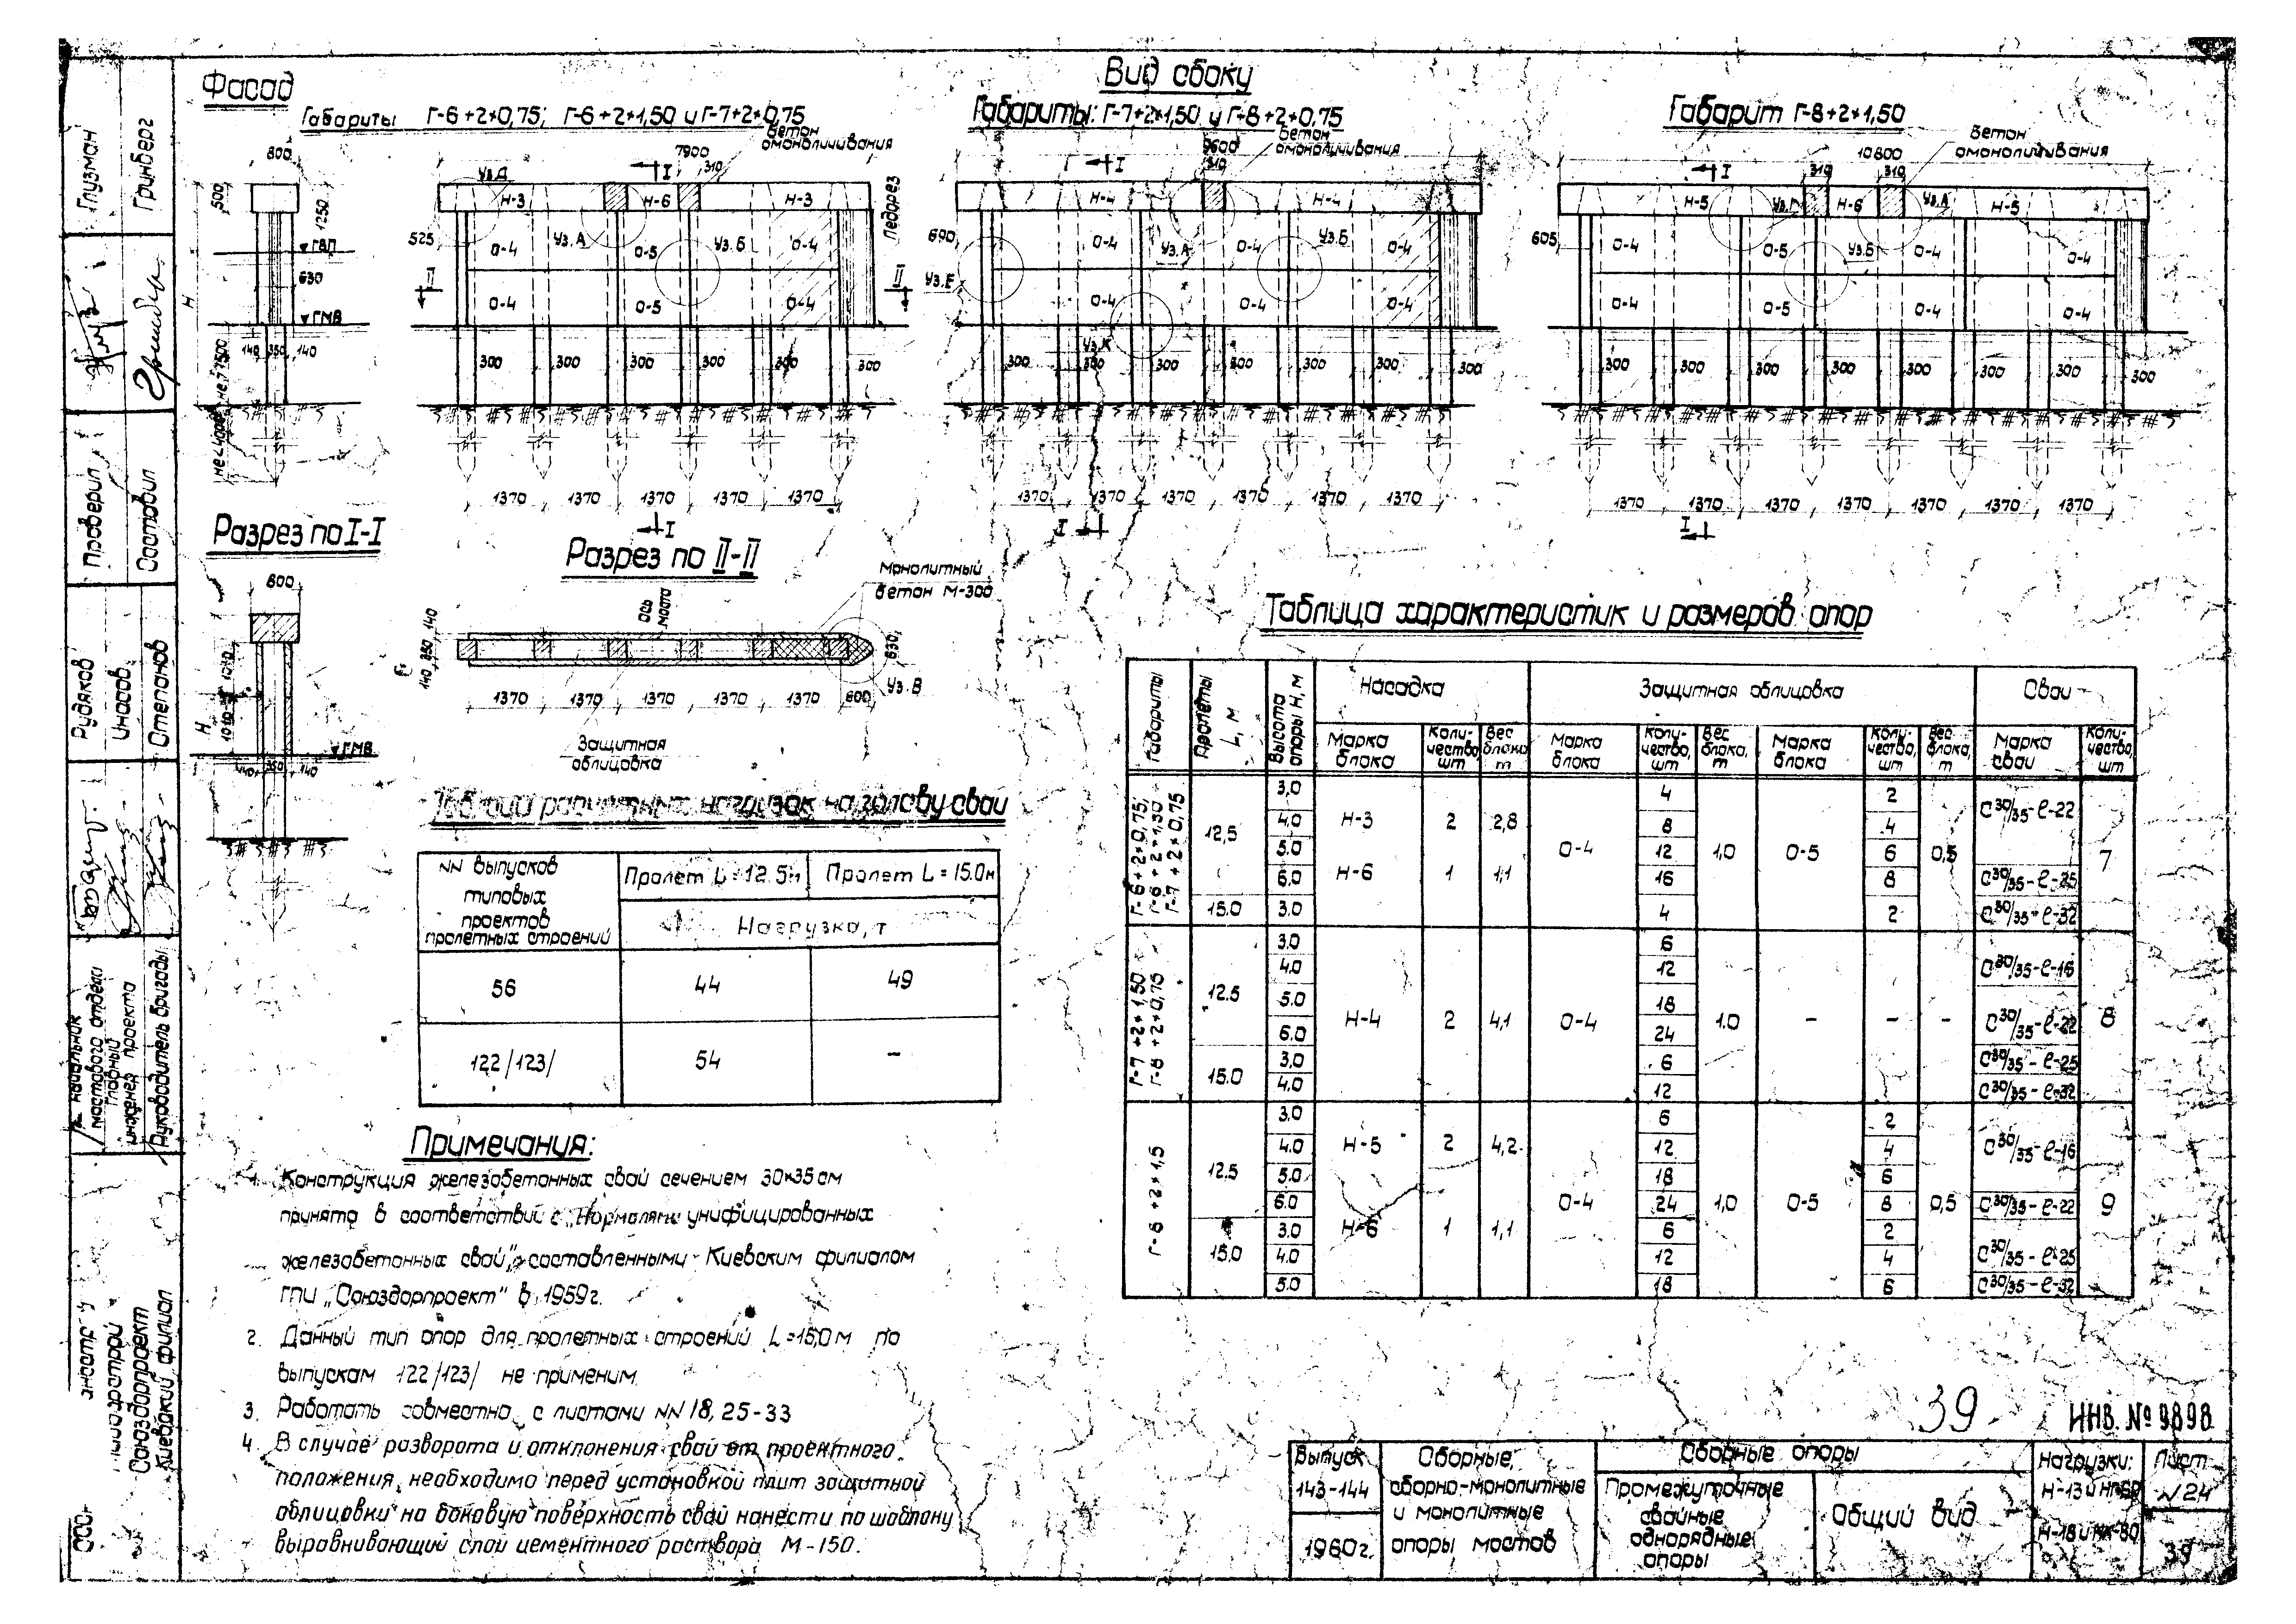 Фасад
Габариты Г-6+2×0,75; Г-6+2×1,50 и Г-7+2×0,75
Вид сбоку
Габариты: Г-7+2×1,50 и Г-8+2×0,75
Габарит Г-8+2×1,50
800
500
1250
ГВП
630
ГМВ
Н
140 350 140
7900
310
Бетон
омоноличивания
I
Уз.Д
Н-3 Н-6 Н-3
525
О-4 Уз.А О-5 Уз.Б О-4
Ледорез
II II
О-4 О-5 О-4
300 300 300 300 300 300
1370 1370 1370 1370 1370
I
9600
310
Бетон
омоноличивания
I
Н-4 Н-4
690
О-4 Уз.А О-4 Уз.Б О-4
Уз.Е
О-4 О-4 О-4
Уз.К
300 300 300 300 300 300 300
1370 1370 1370 1370 1370 1370
I
10800
310 310
Бетон
омоноличивания
I
Н-5 Уз.Г Н-6 Уз.А Н-5
605
О-4 О-5 Уз.Б О-4 О-4
О-4 О-5 О-4 О-4
300 300 300 300 300 300 300 300
1370 1370 1370 1370 1370 1370 1370
I
Разрез по I-I
800
1010
1010
Н
ГМВ
140 350 140
Разрез по II-II
Монолитный
бетон М-300
Ось
моста
140 350 140
630
Уз.В
1370 1370 1370 1370 1370 600
Защитная
облицовка
нагрузок на голову сваи
NN выпусков
типовых
проектов
пролетных строений
Пролет L=12.5м Пролет L=15.0м
Нагрузка, т
56 44 49
122/123/ 54 –
Таблица характеристик и размеров опор
Габариты
Пролеты L, м
Высота опоры Н, м
Насадка Защитная облицовка Сваи
Марка блока
Коли-чество, шт
Вес блока т
Марка блока
Коли-чество, шт
Вес блока, т
Марка блока
Коли-чество, шт
Вес блока, т
Марка сваи
Коли-чество, шт
Г-6+2×0,75;
Г-6+2×1,50
Г-7+2×0,75
12,5
3,0 4 2 С30/35-ℓ-22
4.0 Н-3 2 2,8 8 4
5.0 О-4 12 1,0 О-5 6 0,5 7
6,0 Н-6 1 1,1 16 8 С30/35-ℓ-25
15.0 3.0 4 2 С30/35-ℓ-32
Г-7+2×1,50
Г-8+2×0,75
12.5
3.0 6
4.0 12 С30/35-ℓ-16
5.0 18
6.0 Н-4 2 4,1 О-4 24 1.0 – – – С30/35-ℓ-22 8
15.0
3,0 6 С30/35-ℓ-25
4.0 12 С30/35-ℓ-32
Г-8+2×1,5
12.5
3.0 6 2
4.0 Н-5 2 4,2 12 4 С30/35-ℓ-16
5.0 18 6
6.0 О-4 24 1,0 О-5 8 0,5 С30/35-ℓ-22 9
15.0
3.0 Н-6 1 1,1 6 2
4.0 12 4 С30/35-ℓ-25
5.0 18 6 С30/35-ℓ-32
Примечания:
1. Конструкция железобетонных свай сечением 30×35см
принята в соответствий с „Нормалями унифицированных
железобетонных свай", составленными Киевским филиалом
ГПИ „Союздорпроект" в 1959г.
2. Данный тип опор для пролетных строений L=15,0м по
выпускам 122/123/ не применим.
3. Работать совместно с листами NN 18, 25-33
4. В случае разворота и отклонения свай от проектного
положения, необходимо перед установкой плит защитной
облицовки на боковую поверхность свай нанести по шаблону
выравнивающий слой цементного раствора М-150.
39
ИНВ. № 9898
Выпуск
143-144
1960г.
Сборные,
сборно-монолитные
и монолитные
опоры мостов
Сборные опоры
Промежуточные
свайные
однорядные
опоры
Общий вид
Нагрузки:
Н-13 и НГ-60
Н-18 и НК-80
Лист
N 24
39
Глузман
Гринберг
Проверил
Составил
Рудяков
Степанов
Начальник
мостового отдела
Главный
инженер проекта
Руководитель бригады
Союздорпроект
Киевский филиал